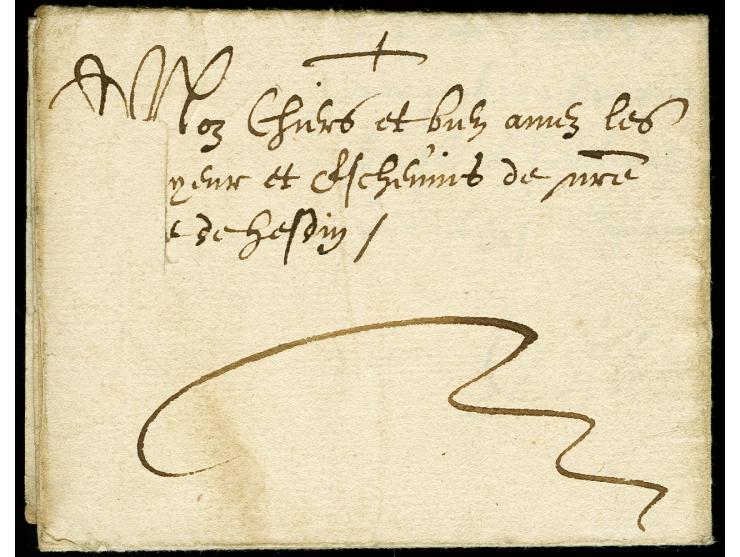 A Noz Chiers et bien amez les
yeur et Eschevins de nre
e de hesdin /